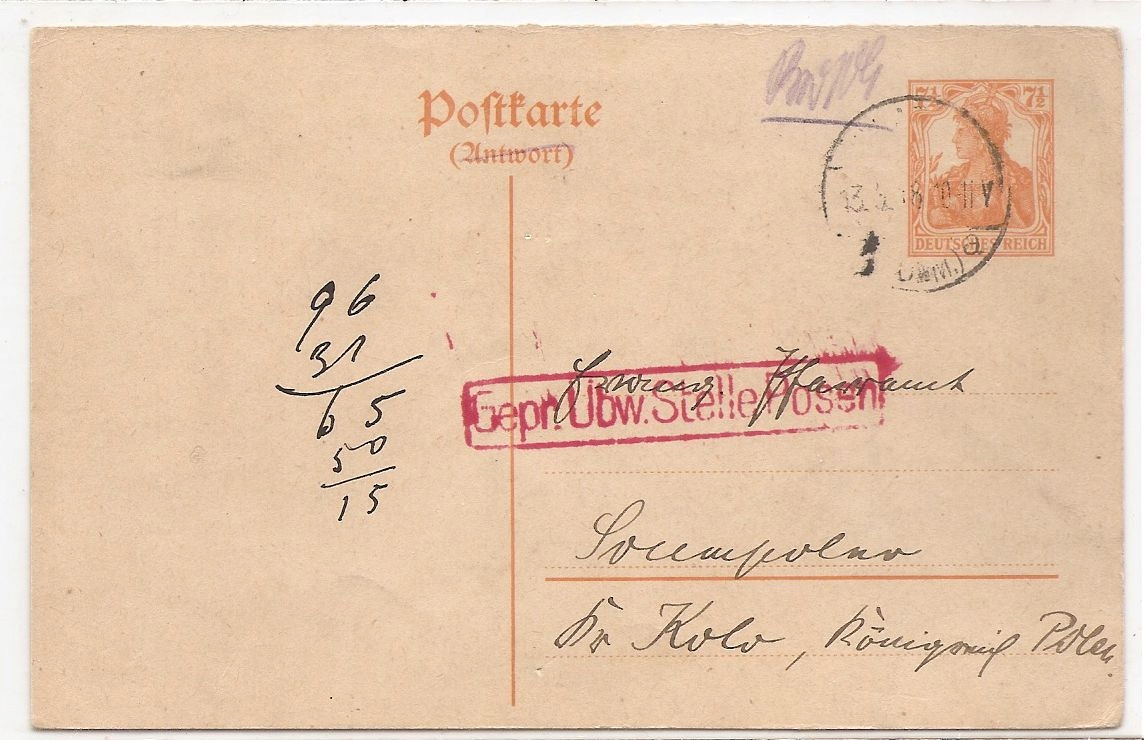 Postkarte
(Antwort)
7½ 7½
DEUTSCHES REICH
13. 5. 18 10-11 V
a
96
31
65
50
15
Gepr. Übw. Stelle Posen
Evang. Pfarramt
Sompolno
Kr Kolo, Königreich Polen